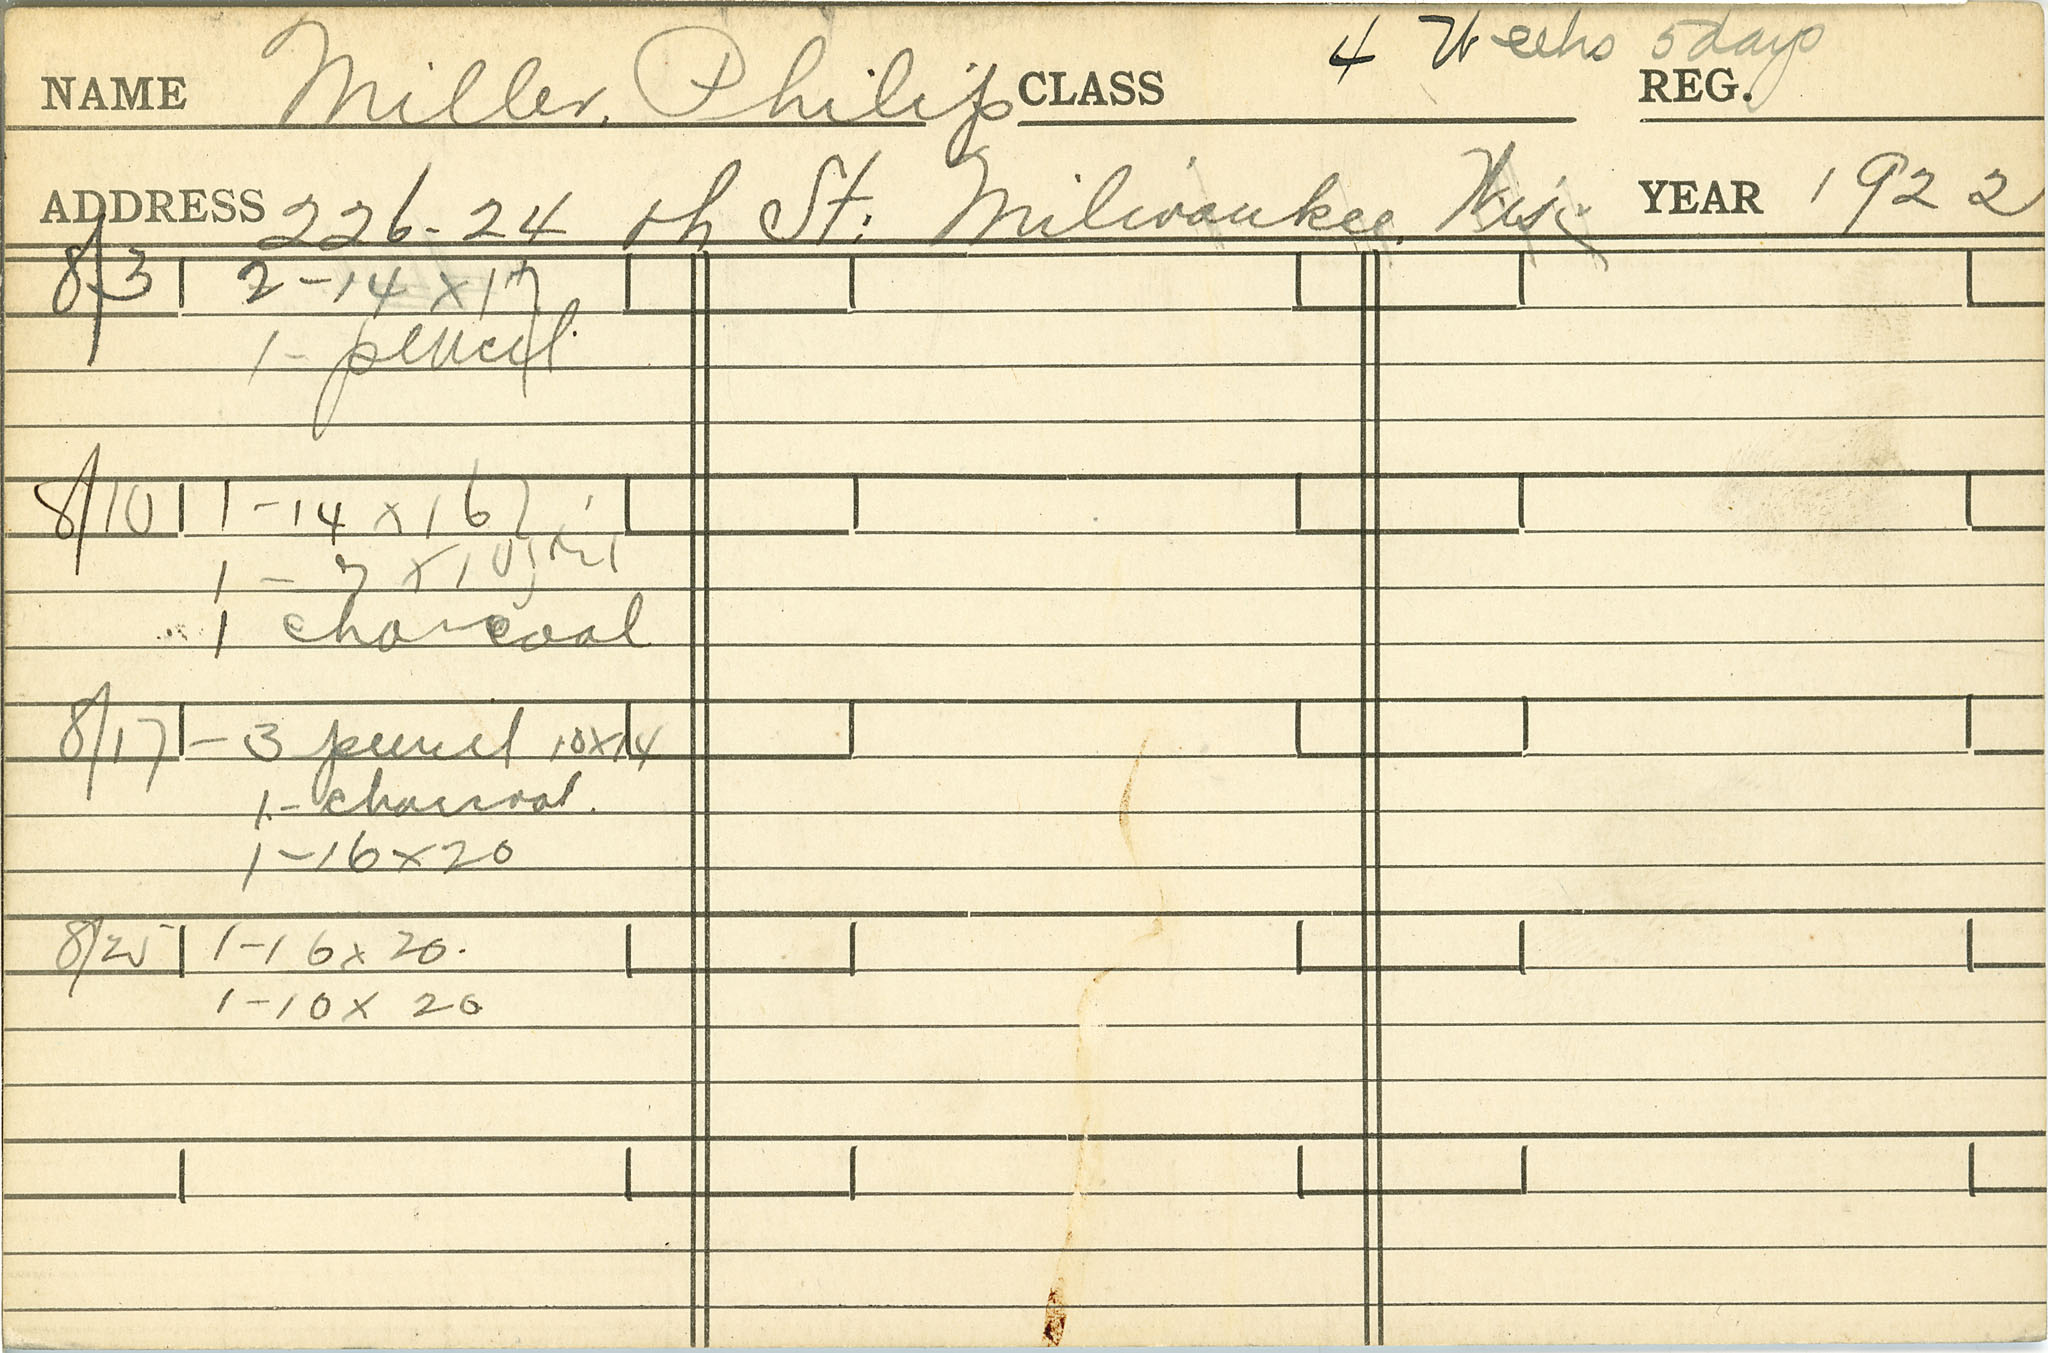 4 Weeks 5 days
NAME Miller, Philip CLASS REG.
ADDRESS 226-24 th St. Milwaukee, Wis. YEAR 1922
8/3 2-14 x 17
1- pencil
8/10 1-14 x 16
1 - 7 x 10
1 charcoal
8/17 - 3 pencil 10x14
1- charcoal.
1-16x20
8/25 1-16 x 20.
1-10 x 20